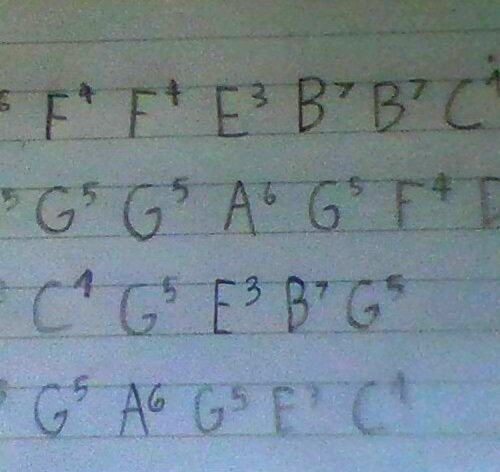 ⁶ F⁴ F⁴ E³ B⁷ B⁷ C¹
⁵ G⁵ G⁵ A⁶ G⁵ F⁴ E
C¹ G⁵ E³ B⁷ G⁵
G⁵ A⁶ G⁵ E³ C¹